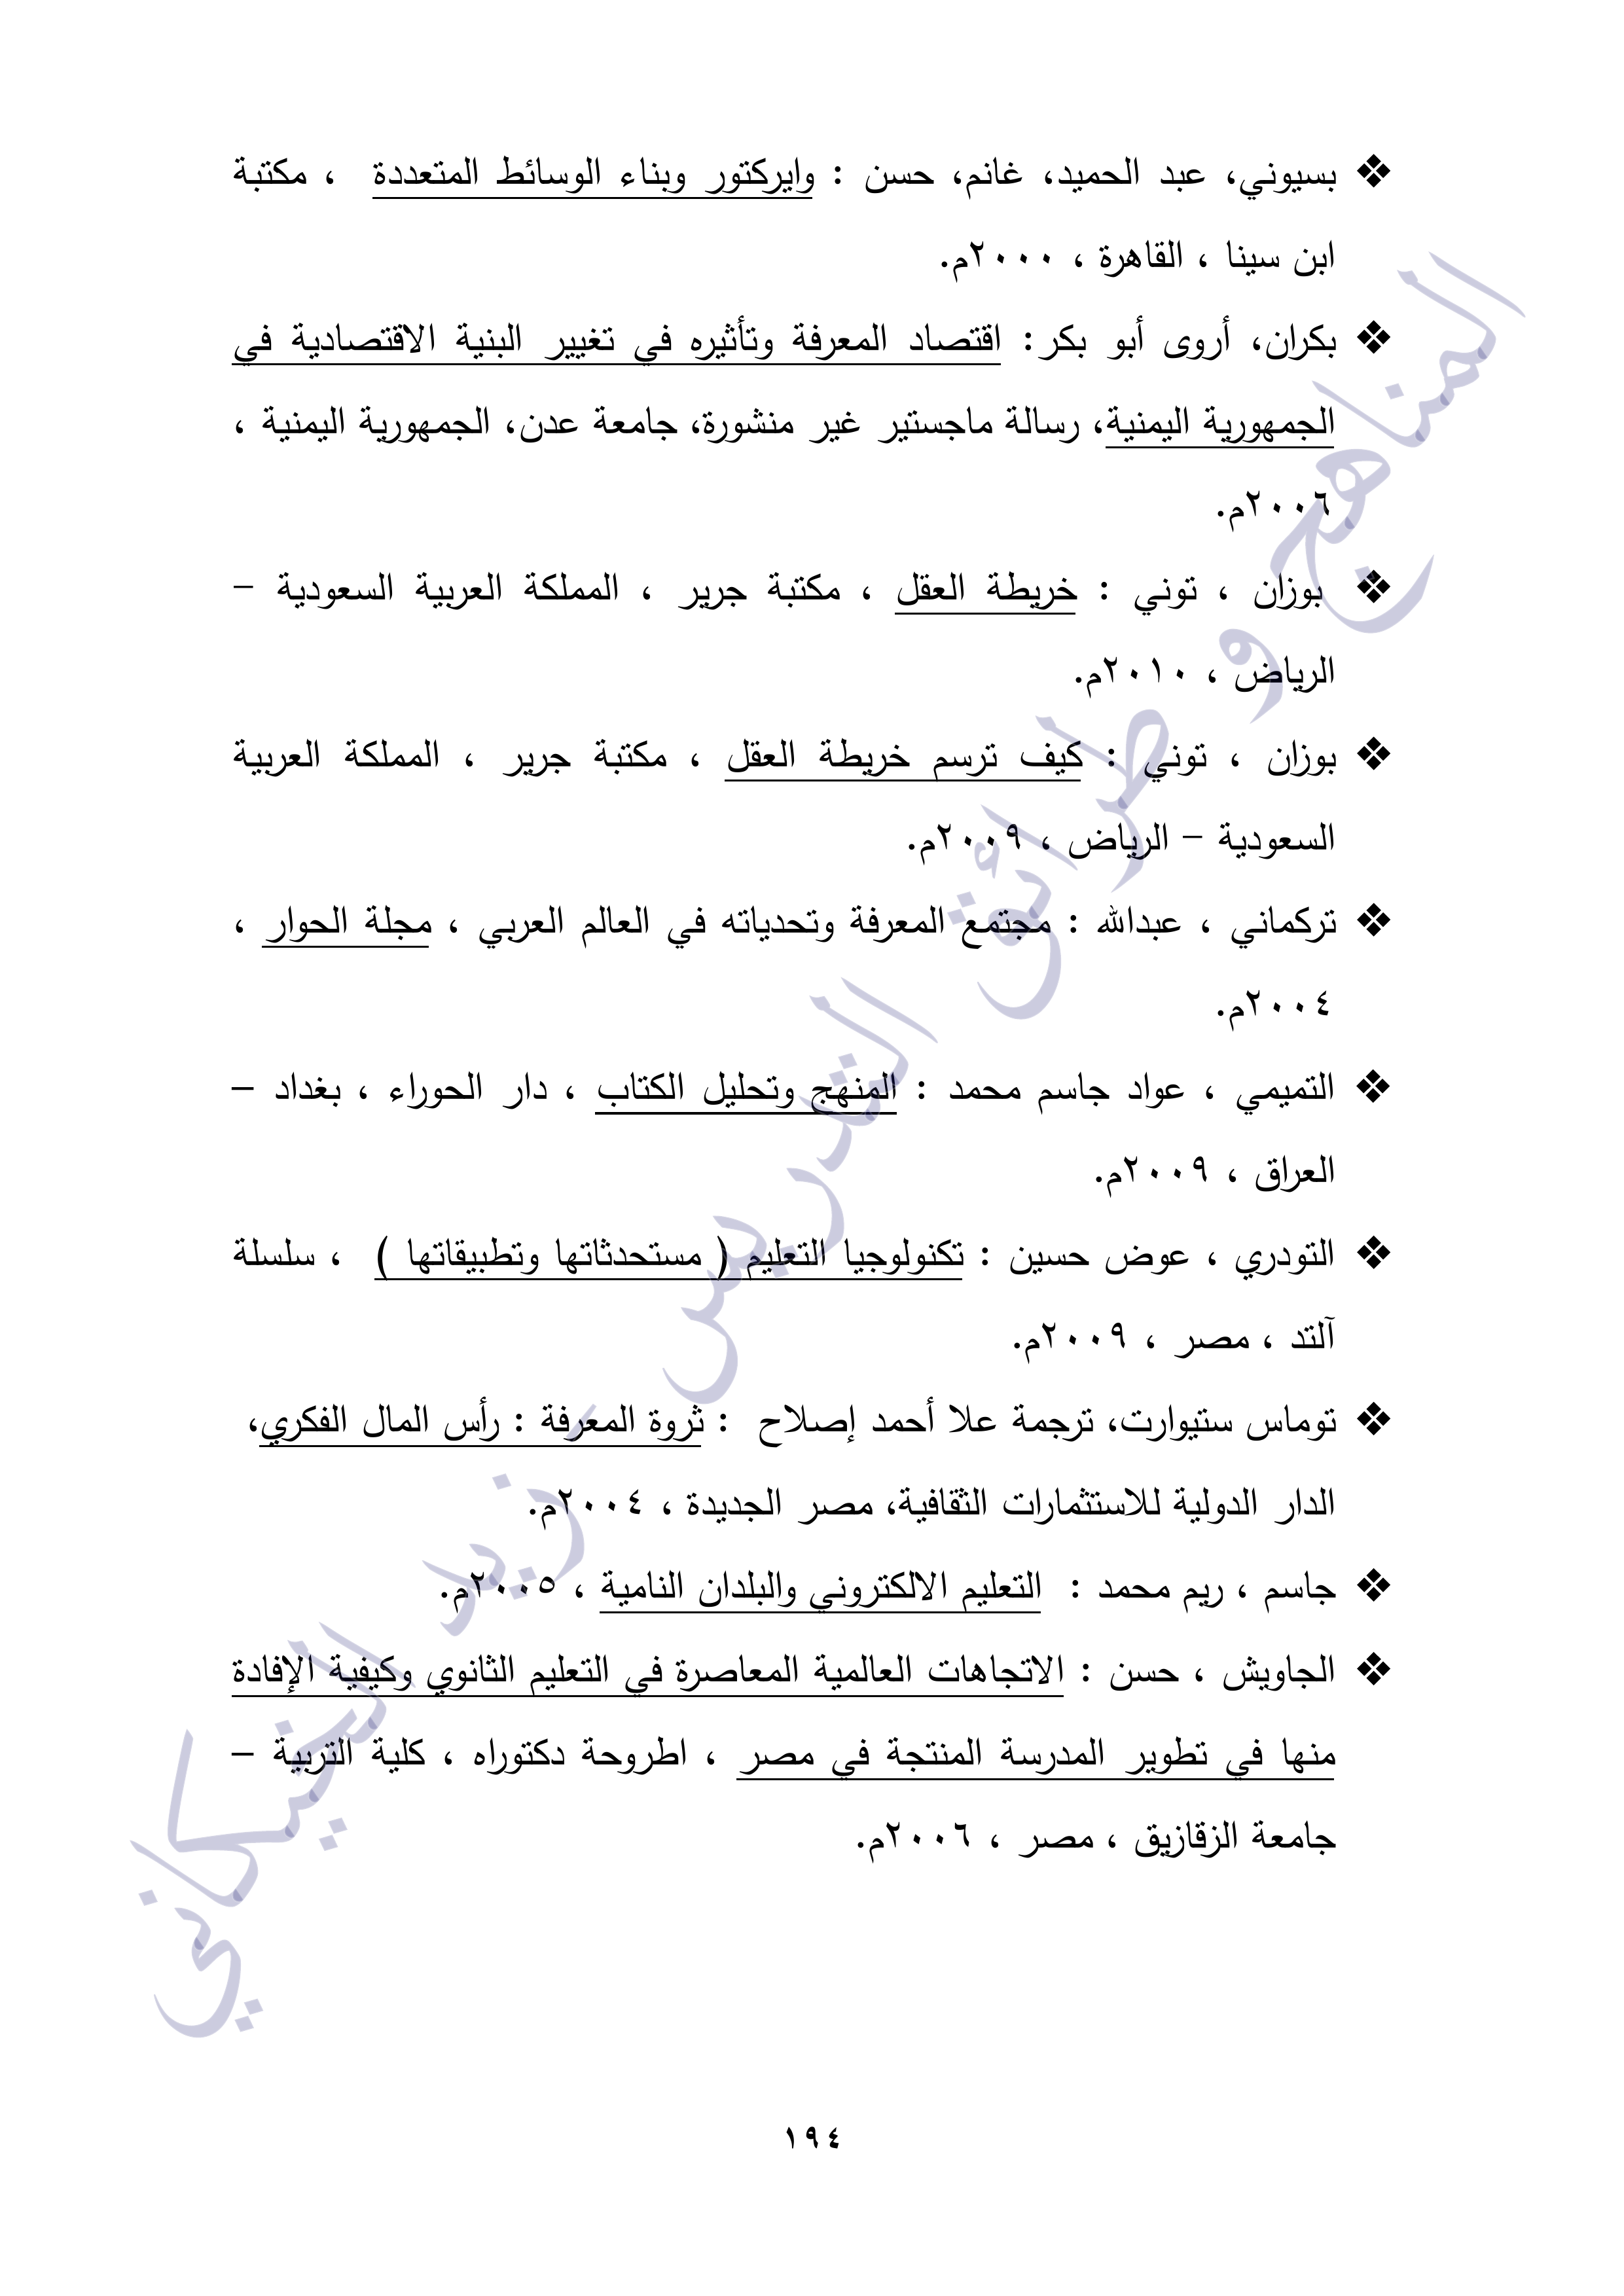 ❖ بسيوني، عبد الحميد، غانم، حسن : وايركتور وبناء الوسائط المتعددة ، مكتبة
ابن سينا ، القاهرة ، ٢٠٠٠م.
❖ بكران، أروى أبو بكر: اقتصاد المعرفة وتأثيره في تغيير البنية الاقتصادية في
الجمهورية اليمنية، رسالة ماجستير غير منشورة، جامعة عدن، الجمهورية اليمنية ،
٢٠٠٦م.
❖ بوزان ، توني : خريطة العقل ، مكتبة جرير ، المملكة العربية السعودية –
الرياض ، ٢٠١٠م.
❖ بوزان ، توني : كيف ترسم خريطة العقل ، مكتبة جرير ، المملكة العربية
السعودية – الرياض ، ٢٠٠٩م.
❖ تركماني ، عبدالله : مجتمع المعرفة وتحدياته في العالم العربي ، مجلة الحوار ،
٢٠٠٤م.
❖ التميمي ، عواد جاسم محمد : المنهج وتحليل الكتاب ، دار الحوراء ، بغداد –
العراق ، ٢٠٠٩م.
❖ التودري ، عوض حسين : تكنولوجيا التعليم ( مستحدثاتها وتطبيقاتها ) ، سلسلة
آلتد ، مصر ، ٢٠٠٩م.
❖ توماس ستيوارت، ترجمة علا أحمد إصلاح : ثروة المعرفة : رأس المال الفكري،
الدار الدولية للاستثمارات الثقافية، مصر الجديدة ، ٢٠٠٤م.
❖ جاسم ، ريم محمد : التعليم الالكتروني والبلدان النامية ، ٢٠٠٥م.
❖ الجاويش ، حسن : الاتجاهات العالمية المعاصرة في التعليم الثانوي وكيفية الإفادة
منها في تطوير المدرسة المنتجة في مصر ، اطروحة دكتوراه ، كلية التربية –
جامعة الزقازيق ، مصر ، ٢٠٠٦م.
المناهج و طرائق التدريس - زيد الخيكاني
١٩٤